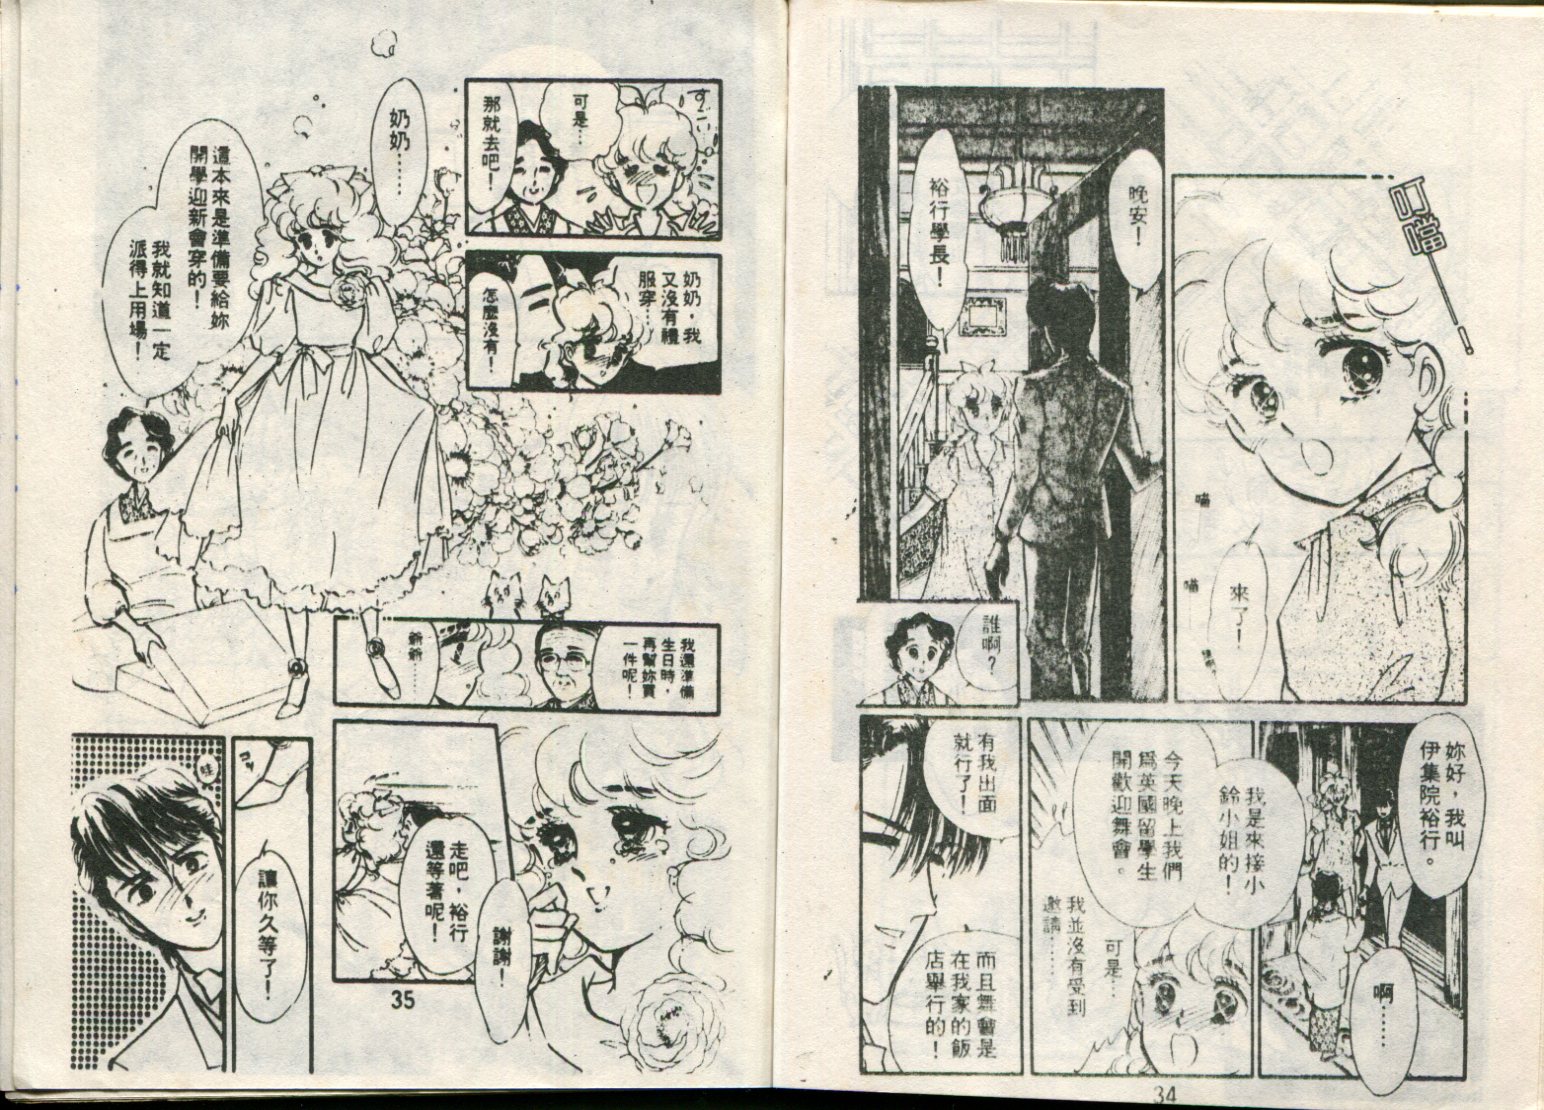 叮噹
喵
喵
來了！
晚安！
裕行學長！
誰啊？
妳好，我叫
伊集院裕行。
啊……
我是來接小
鈴小姐的！
今天晚上我們
爲英國留學生
開歡迎舞會。
可是…
我並沒有受到
邀請……
有我出面
就行了！
而且舞會是
在我家的飯
店舉行的！
34
可是…
那就去吧！
奶奶，我
又沒有禮
服穿…
怎麼沒有！
奶奶……
這本來是準備要給妳
開學迎新會穿的！
我就知道一定
派得上用場！
我還準備
生日時，
再幫妳買
一件呢！
謝謝！
走吧，裕行
還等著呢！
讓你久等了！
35